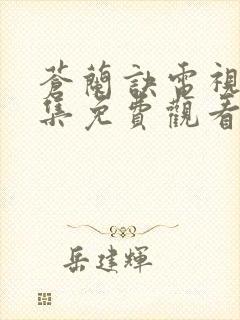 蒼蘭訣電視
集免費觀看
岳建輝